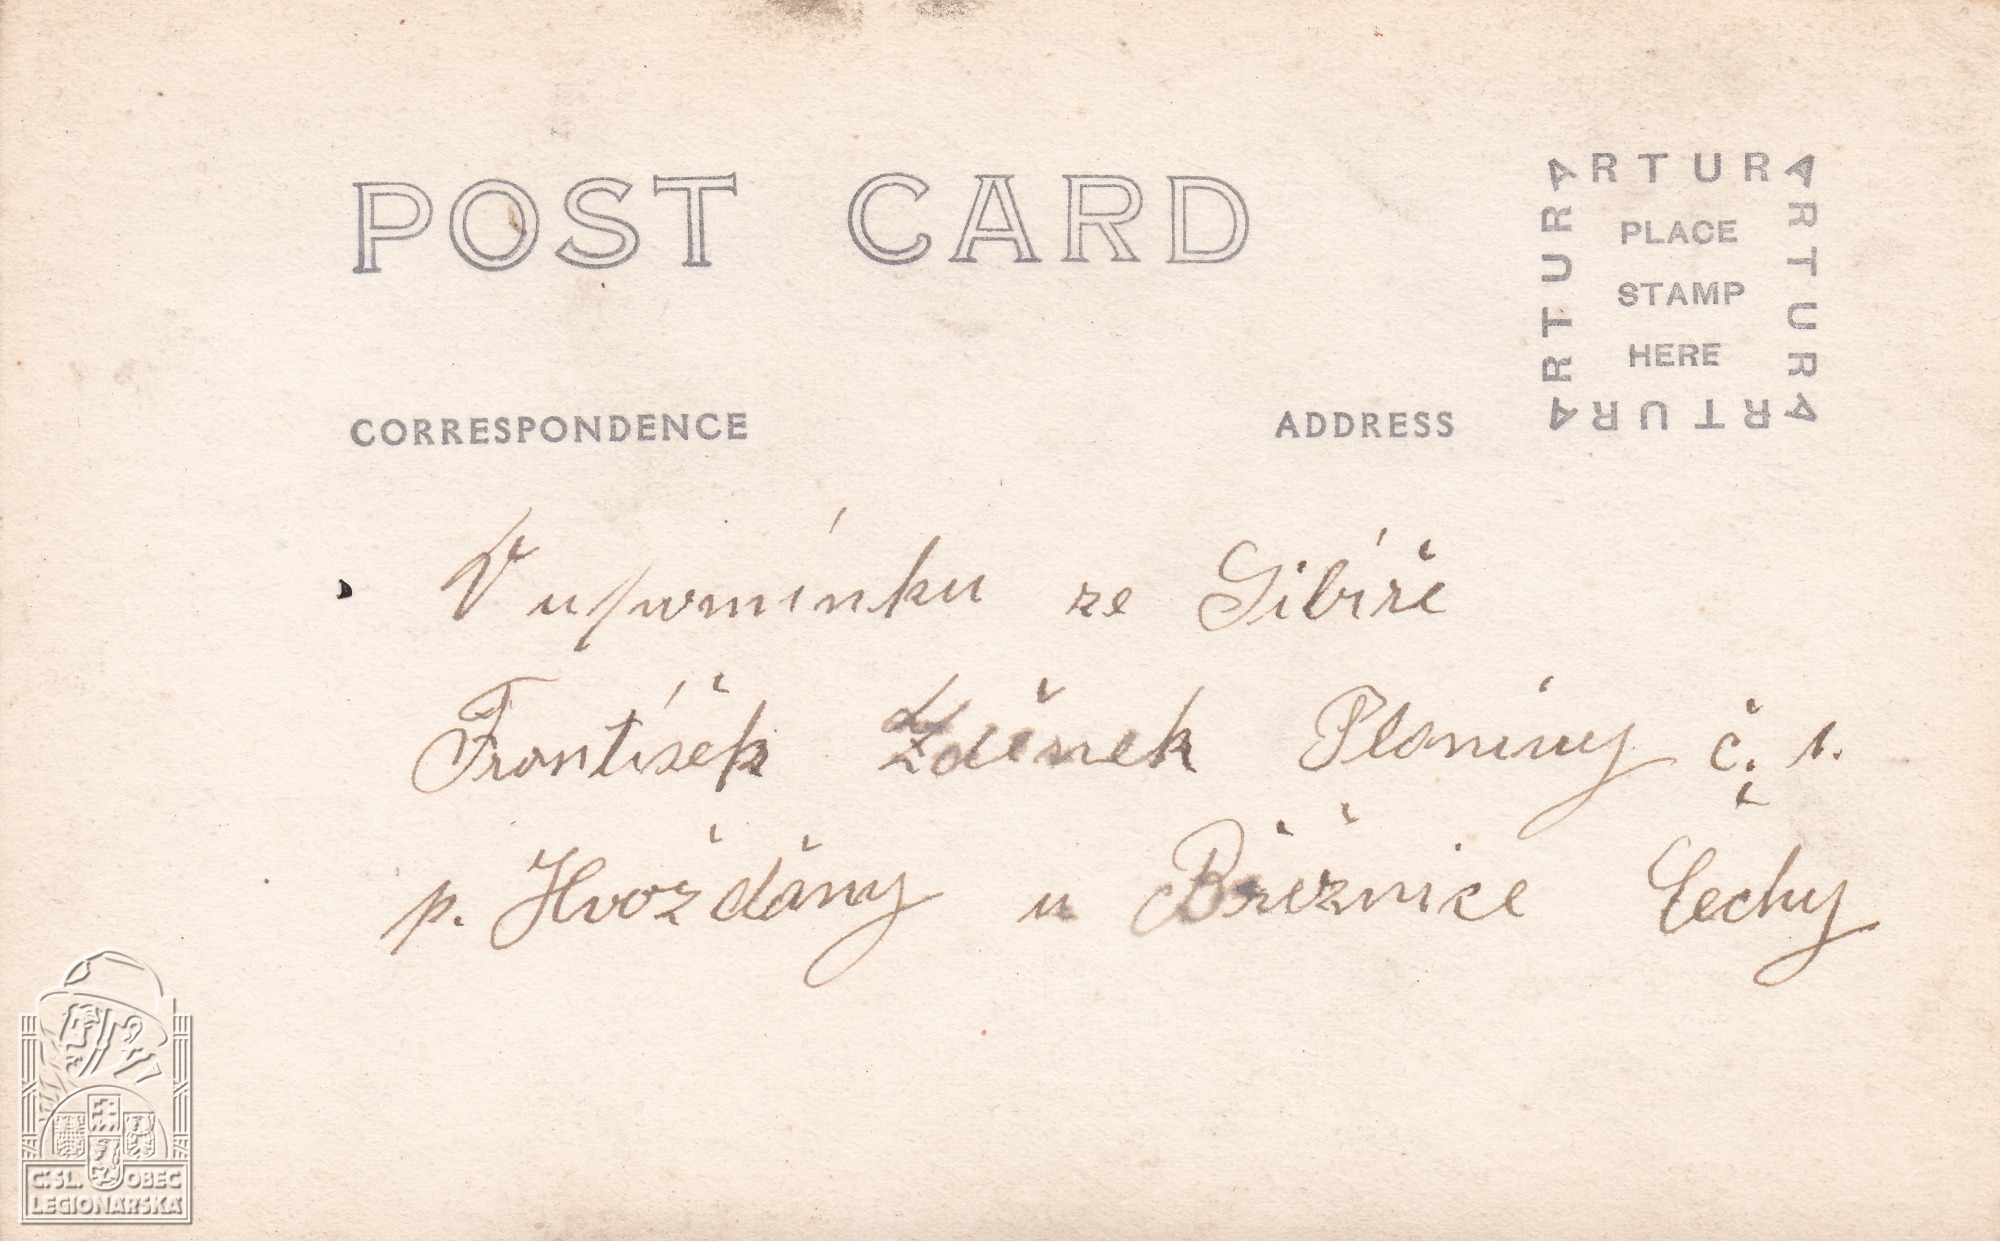 POST CARD
ARTURA
ARTURA
ARTURA
ARTURA
PLACE
STAMP
HERE
CORRESPONDENCE
ADDRESS
V upomínku ze Sibíře
František Zděnek Planiny č. 1.
p. Hvožďány u Břežnice Čechy
Č.SL. OBEC
LEGIONÁŘSKÁ